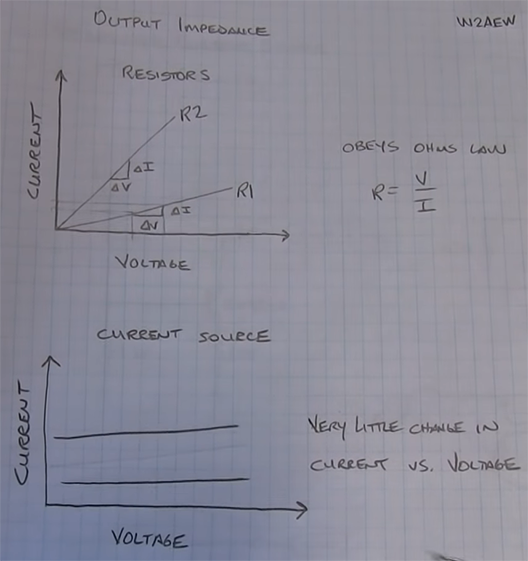 OUTPUT IMPEDANCE
W2AEW
RESISTORS
CURRENT
R2
ΔI
ΔV
R1
ΔI
ΔV
VOLTAGE
OBEYS OHMS LAW
R = V
I
CURRENT SOURCE
CURRENT
VOLTAGE
VERY LITTLE CHANGE IN
CURRENT VS. VOLTAGE